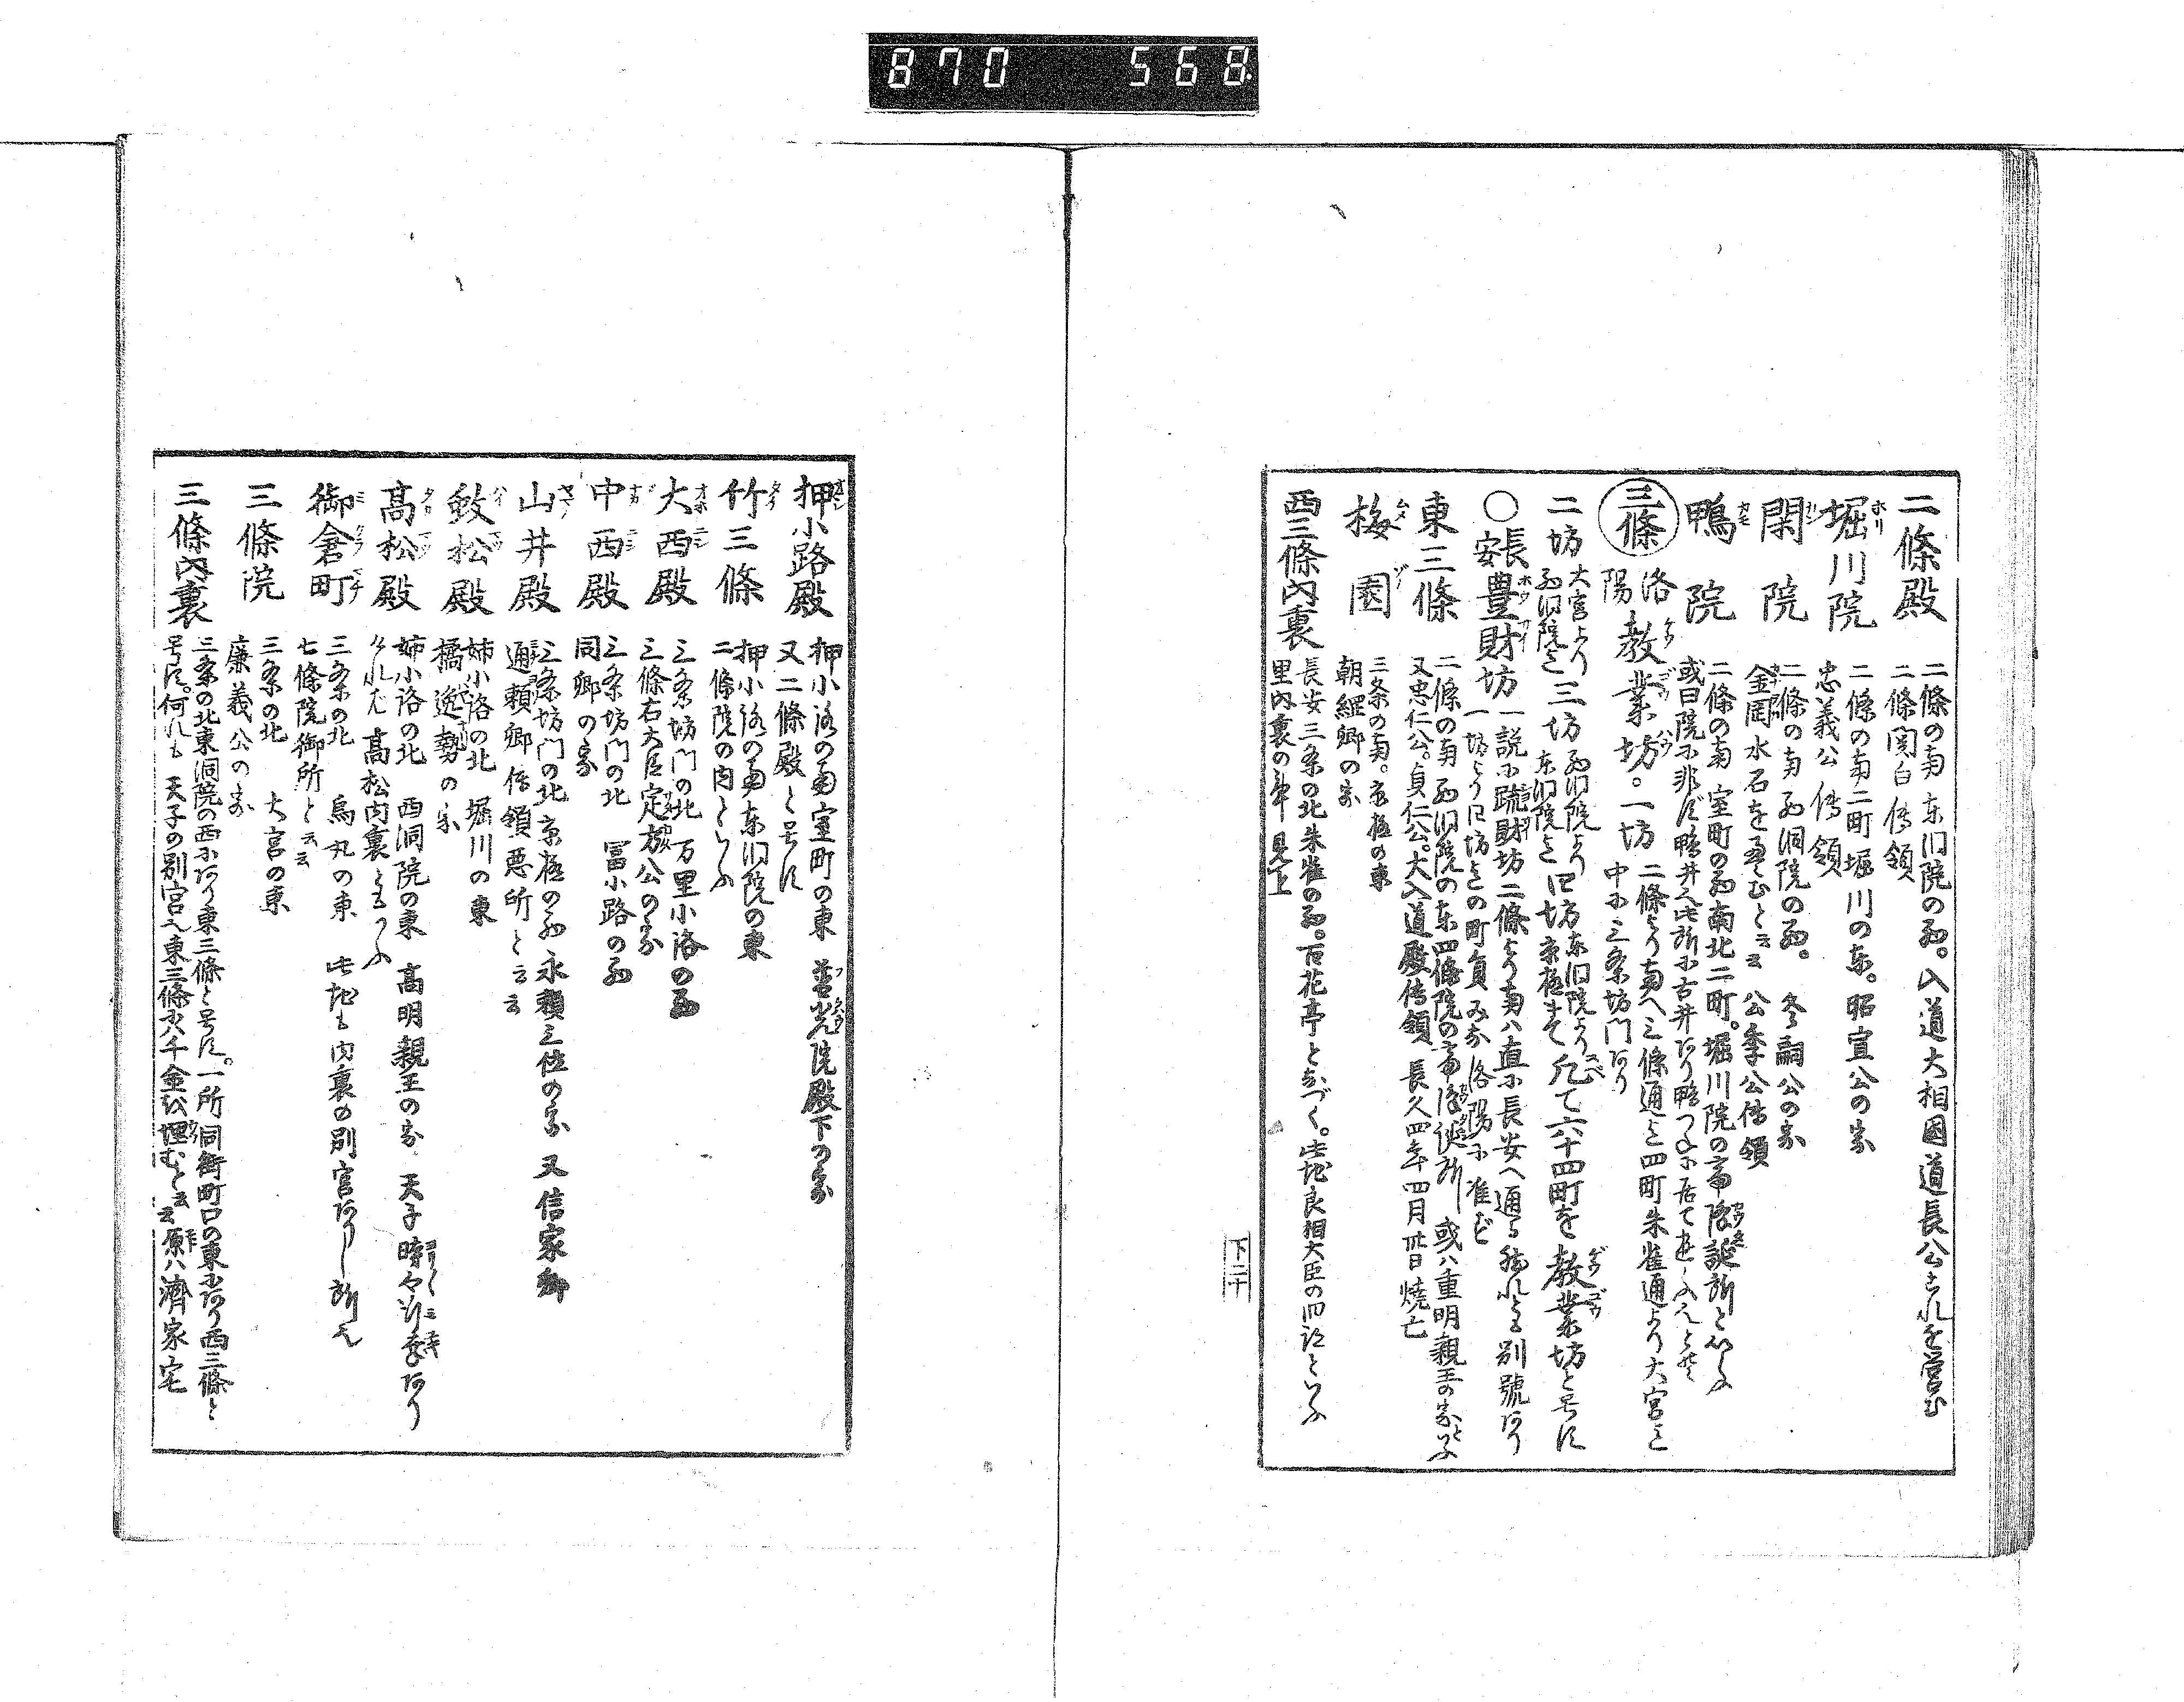 870 568
二條殿 二條の南東洞院の西。入道大相国道長公これを営む
二條関白傳領
堀川院 二條の南二町堀川の东。昭宣公の家
忠義公傳領
閑院 二條の南西洞院の西。 冬嗣公の家
金岡水石を畳むと云云 公季公傳領
鴨院 二條の南室町の西南北二町。堀川院の斎院誕所といふ
或曰院ニ非ズ鴨井
三條 洛陽教業坊。一坊 二條より南へ三條通迄四町朱雀通より大宮迄
中に三条坊門あり
二坊 大宮より西洞院迄 三坊 西洞院より东洞院迄 四坊 东洞院より京極まで 凡て六十四町を教業坊と号す
○長安豊財坊 一説ニ 財坊二條より南ハ直ニ長安へ通る然れども別號あり
一坊より四坊迄の町員みな洛陽に准ず
東三條 二條の南西洞院の东四條院の 誕所 或ハ重明親王の家といふ
又忠仁公。貞仁公。大入道殿傳領 長久四年四月卅日焼亡
梅園 三条の南。京極の東
朝綱卿の家
西三條内裏 長安三条の北朱雀の西。百花亭となづく。此地良相大臣の旧跡といふ
里内裏の年見上
下二十
押小路殿 押小路の南室町の東 普光院殿下の家
又二條殿と号す
竹三條 押小路の南东洞院の東
二條院の内といふ
大西殿 三条坊門の北 万里小路の西
三條右大臣定方公の家
中西殿 三条坊門の北 冨小路の西
同卿の家
山井殿 三条坊門の北京極の西 永頼三位の家 又信家卿
通頼卿傳領悪所と云云
鮫松殿 姉小路の北 堀川の東
橘逸勢の家
高松殿 姉小路の北 西洞院の東 高明親王の家 天子時々行幸あり
高松内裏ともいふ
御倉町 三条の北 烏丸の東 此地も内裏の別宮ありし所也
七條院御所と云云
三條院 三条の北 大宮の東
廉義公の家
三條内裏 三条の北東洞院の西にあり東三條と号す。一所同街町口の東にあり西三條と
号す。何れも天子の別宮也東三條にハ千金を埋むと云云原ハ濟家宅